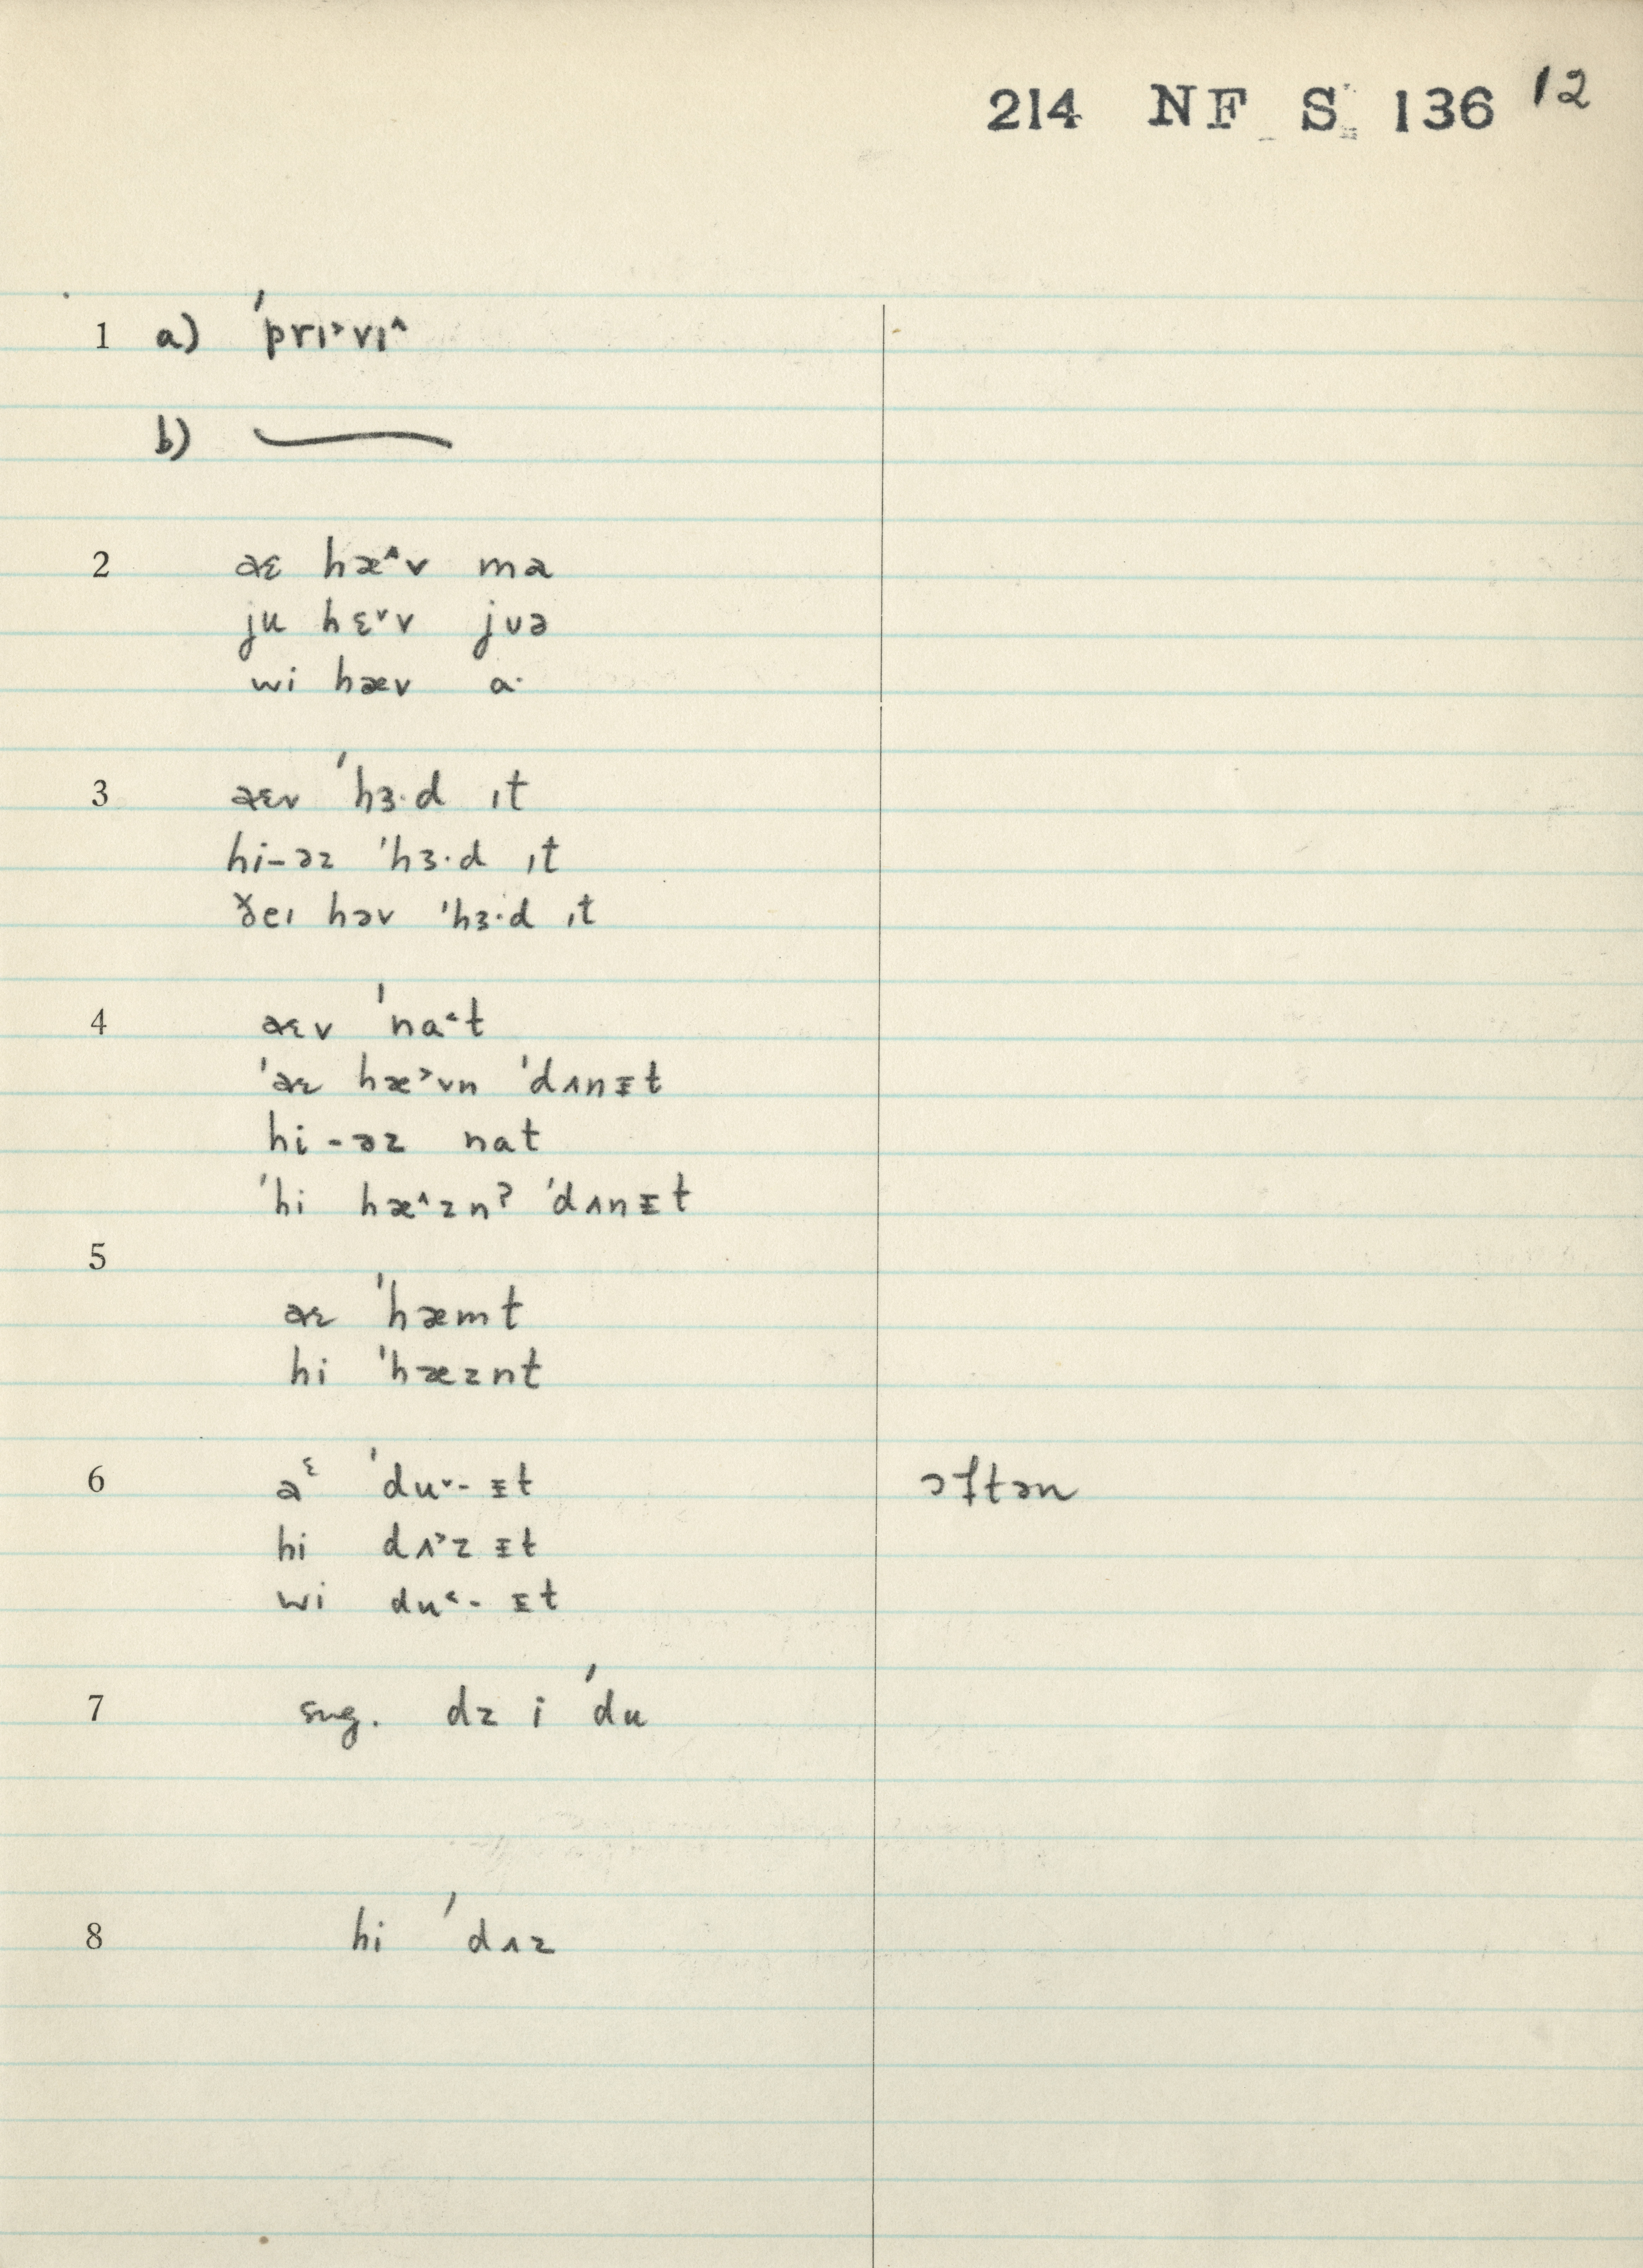 214 NF S 136 12
1 a) ˈprɪ˃vɪ˄
b) —
2 aɛ hæ˄v ma
ju hɛ˅v jʊə
wi hæv a·
3 aɛv ˈhɜ·d ɪt
hi-əz ˈhɜ·d ɪt
ðeɪ həv ˈhɜ·d ɪt
4 aɛv ˈna˂t
ˈaɛ hæ˃vn ˈdʌnᵻt
hi-əz nat
ˈhi hæ˄znʔ ˈdʌnᵻt
5
aɛ ˈhæmt
hi ˈhæznt
6 aᵋ ˈdu˅- ᵻt ɔftən
hi dʌ˃z ᵻt
wi du˂- ᵻt
7 sug. dz i ˈdu
8 hi ˈdʌz